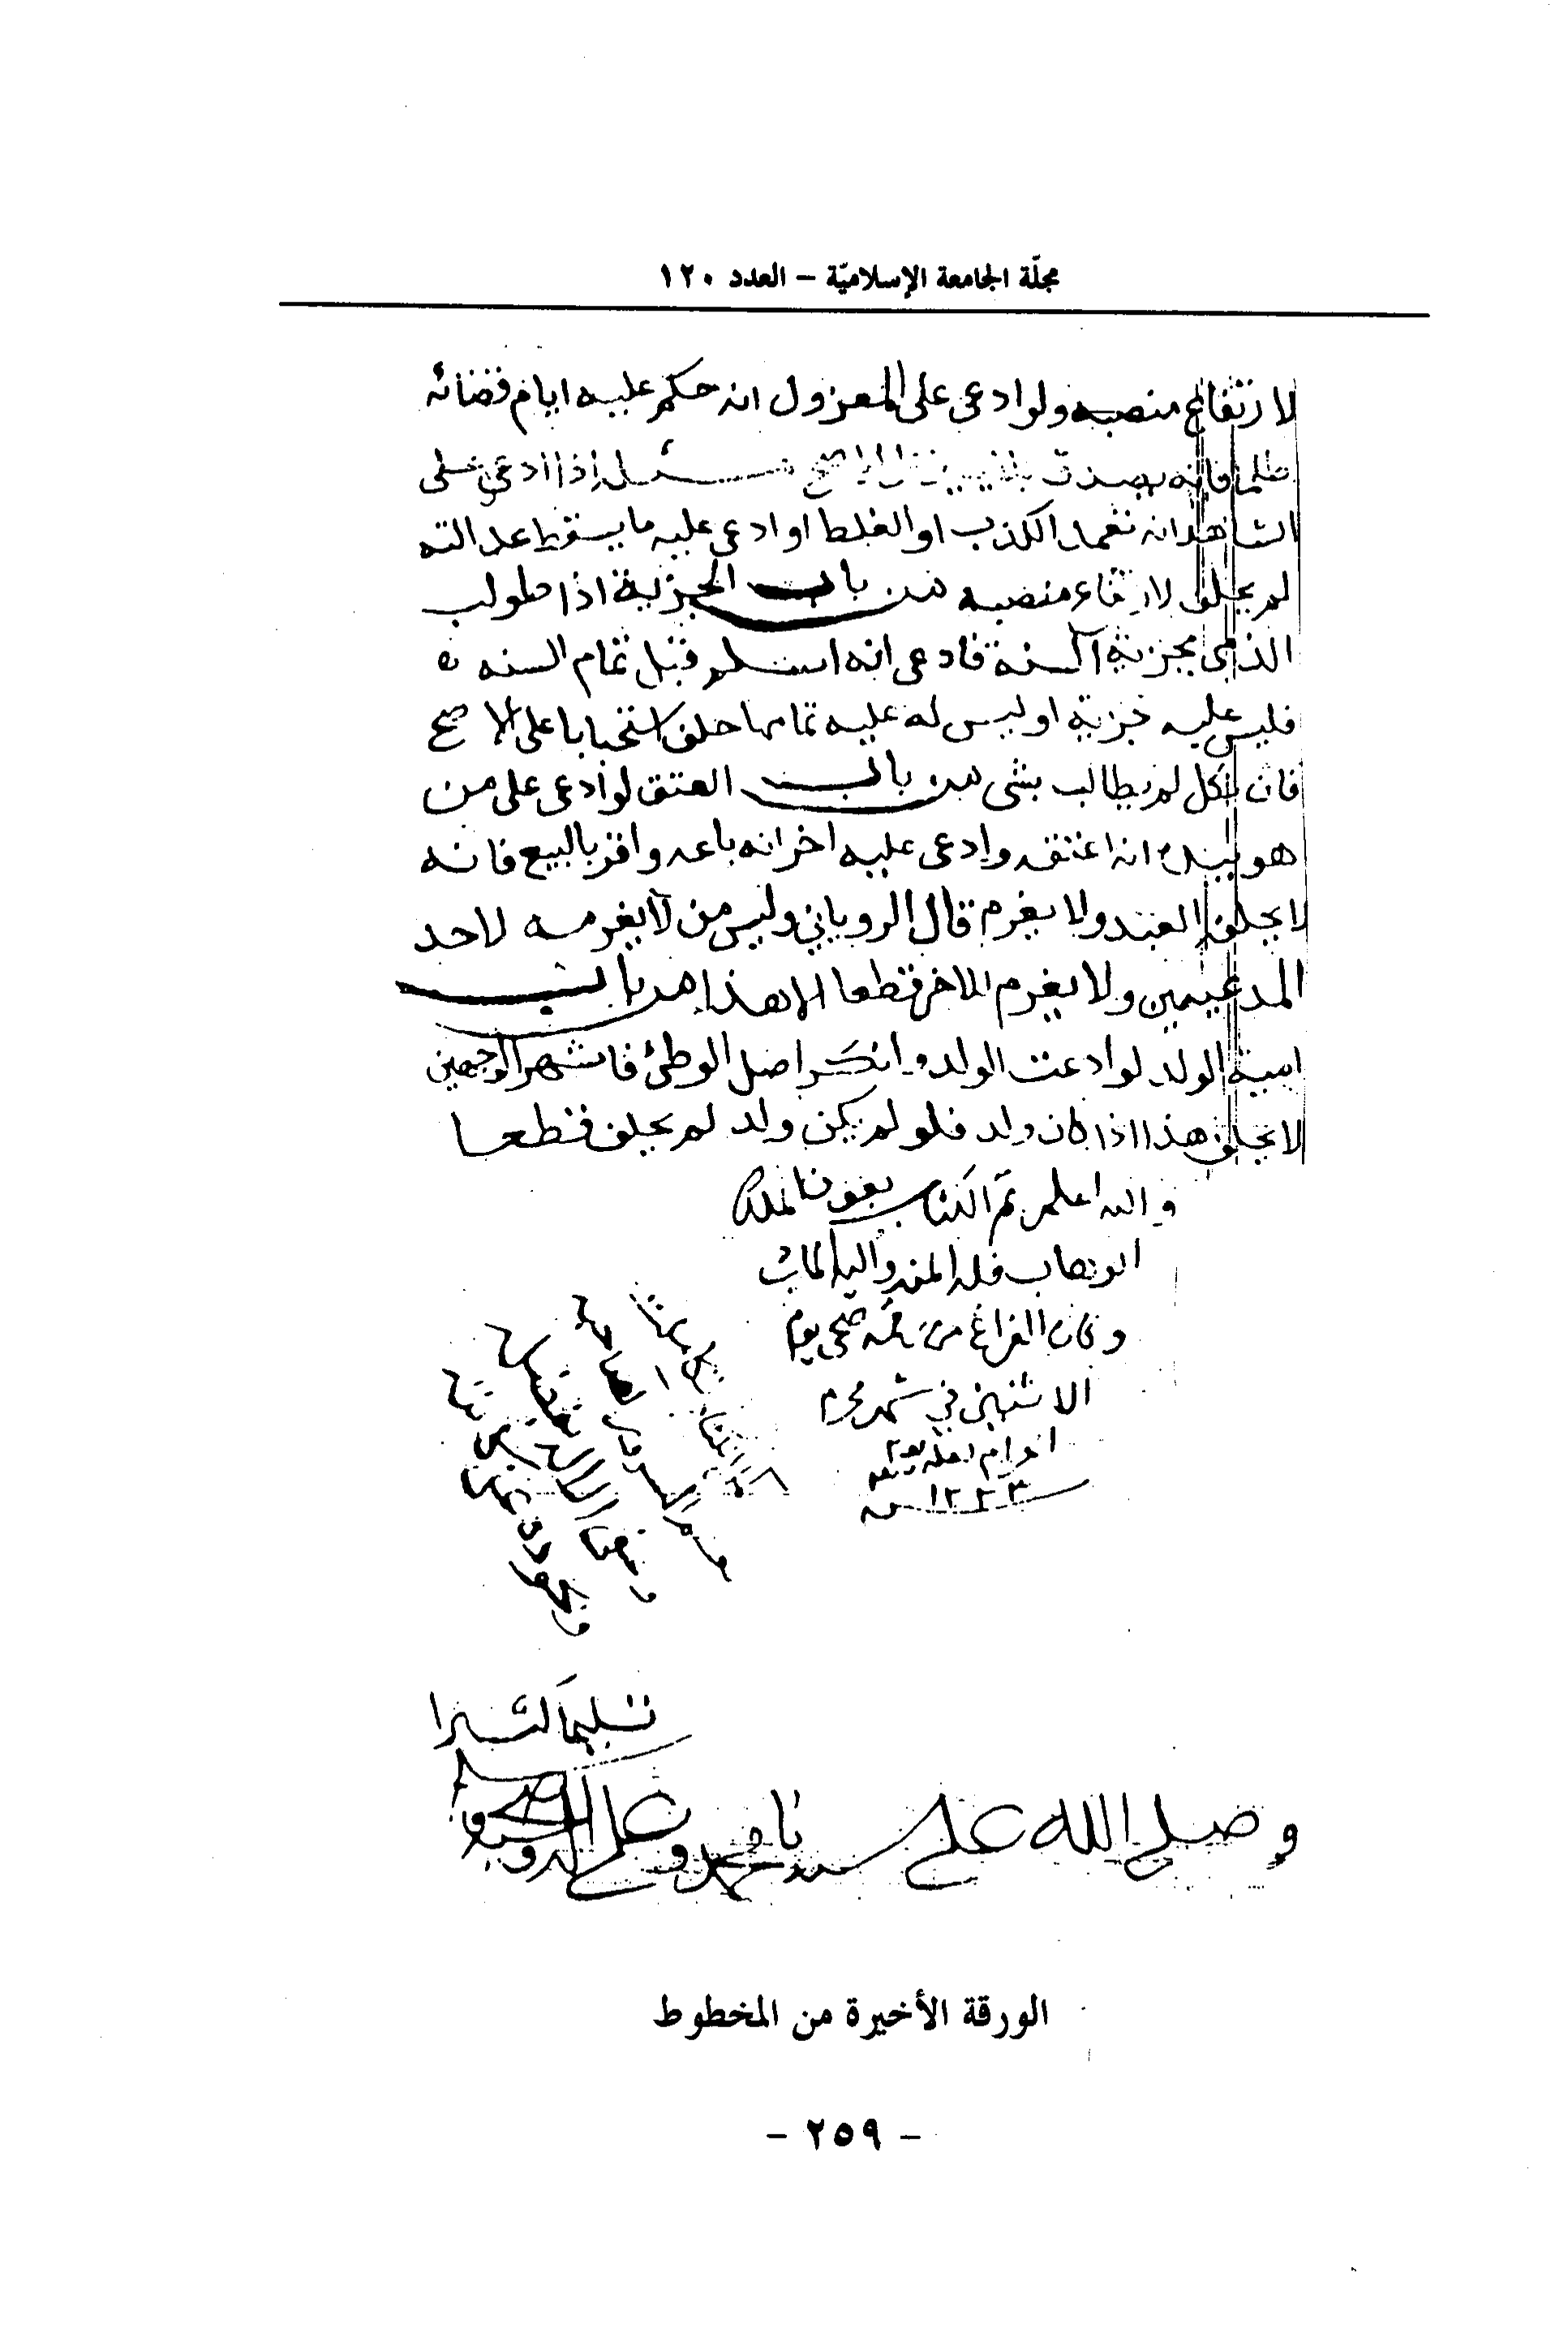 مجلّة الجامعة الإسلاميّة – العدد ١٢٠
لارتفاع منصبه ولو ادعى على المعزول انه حكم عليه ايام قضائه
ظلما فانه يصدق بلا يمين على الاصح مسئلة اذا ادعى على
الشاهد انه تعمد الكذب او الغلط او ادعى عليه ما يسقط عدالته
لم يحلف لارتفاع منصبه من باب الجزية اذا طولب
الذمي بجزية السنة فادعى انه اسلم قبل تمام السنه
فليس عليه جزية او ليس له عليه تمامها حلف استحبابا على الاصح
فان نكل لم يطالب بشى من باب العتق لو ادعى على من
هو بيده انه اعتقه وادعى عليه اخر انه باعه واقر بالبيع فانه
لا يحلف العبد ولا يغرم قال الروياني وليس من لا يغرمه لاحد
المدعيين ولا يغرم للاخر قطعا الا هذا من باب
امية الولد لو ادعت الولد وانكر اصل الوطئ فاشهر الوجهين
لا يحلف هذا اذا كان ولد فلو لم يكن ولد لم يحلف قطعا
والله اعلم تم الكتاب بعون الملك
الوهاب فله المنه واليه المآب
وكان الفراغ من نسخه ضحى يوم
الاثنين في شهر محرم
الحرام
١٢٢٣ سنه
تسليما كثيرا
وصلى الله على سيدنا محمد وعلى اله وصحبه وسلم
الورقة الأخيرة من المخطوط
- ٢٥٩ -